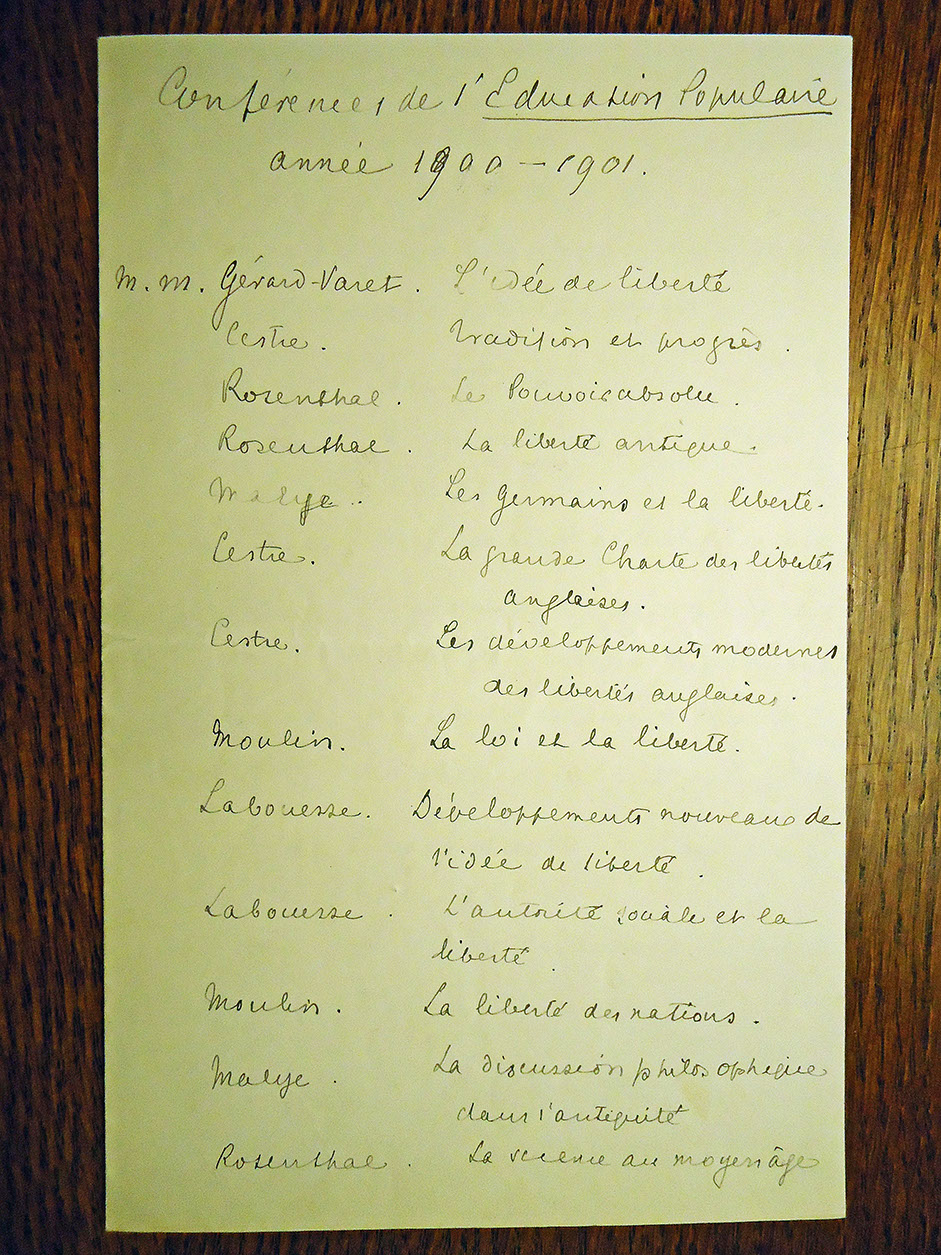 Conférences de l'Education Populaire
année 1900 - 1901.
M. M. Gérard-Varet. L'idée de liberté
Cestre. Tradition et progrès.
Rosenthal. Le Pouvoir absolu.
Rosenthal. La liberté antique.
Malye. Les Germains et la liberté.
Cestre. La grande Charte des libertés
anglaises.
Cestre. Les développements modernes
des libertés anglaises.
Moulin. La loi et la liberté.
Labouesse. Développements nouveaux de
l'idée de liberté.
Labouesse. L'autorité sociale et la
liberté.
Moulin. La liberté des nations.
Malye. La discussion philosophique
dans l'antiquité
Rosenthal. La science au moyen âge